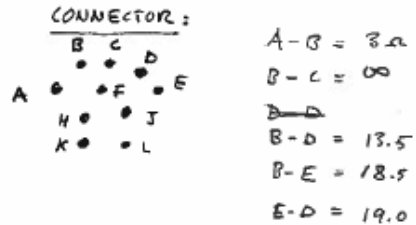 CONNECTOR:
B C D
A F E
H J
K L
A-B = 3Ω
B-C = ∞
D-D
B-D = 13.5
B-E = 18.5
E-D = 19.0